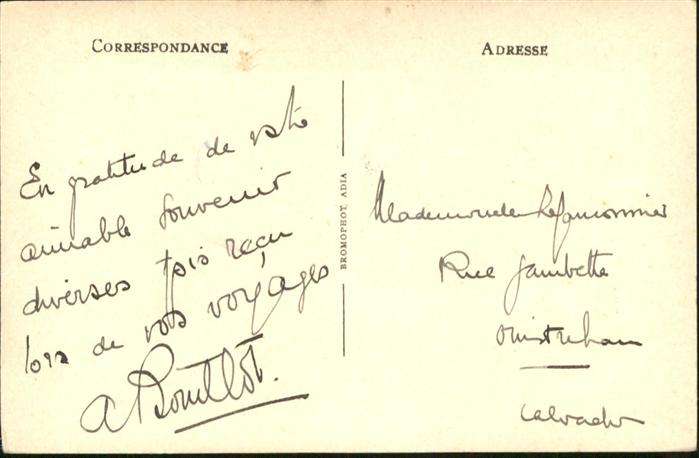 CORRESPONDANCE
En gratitude de votre
aimable souvenir
diverses fois reçu
lors de vos voyages
A Bouillot.
BROMOPHOT, ADIA
ADRESSE
Mademoiselle Lefauconnier
Rue Gambetta
Ouistreham
Calvados